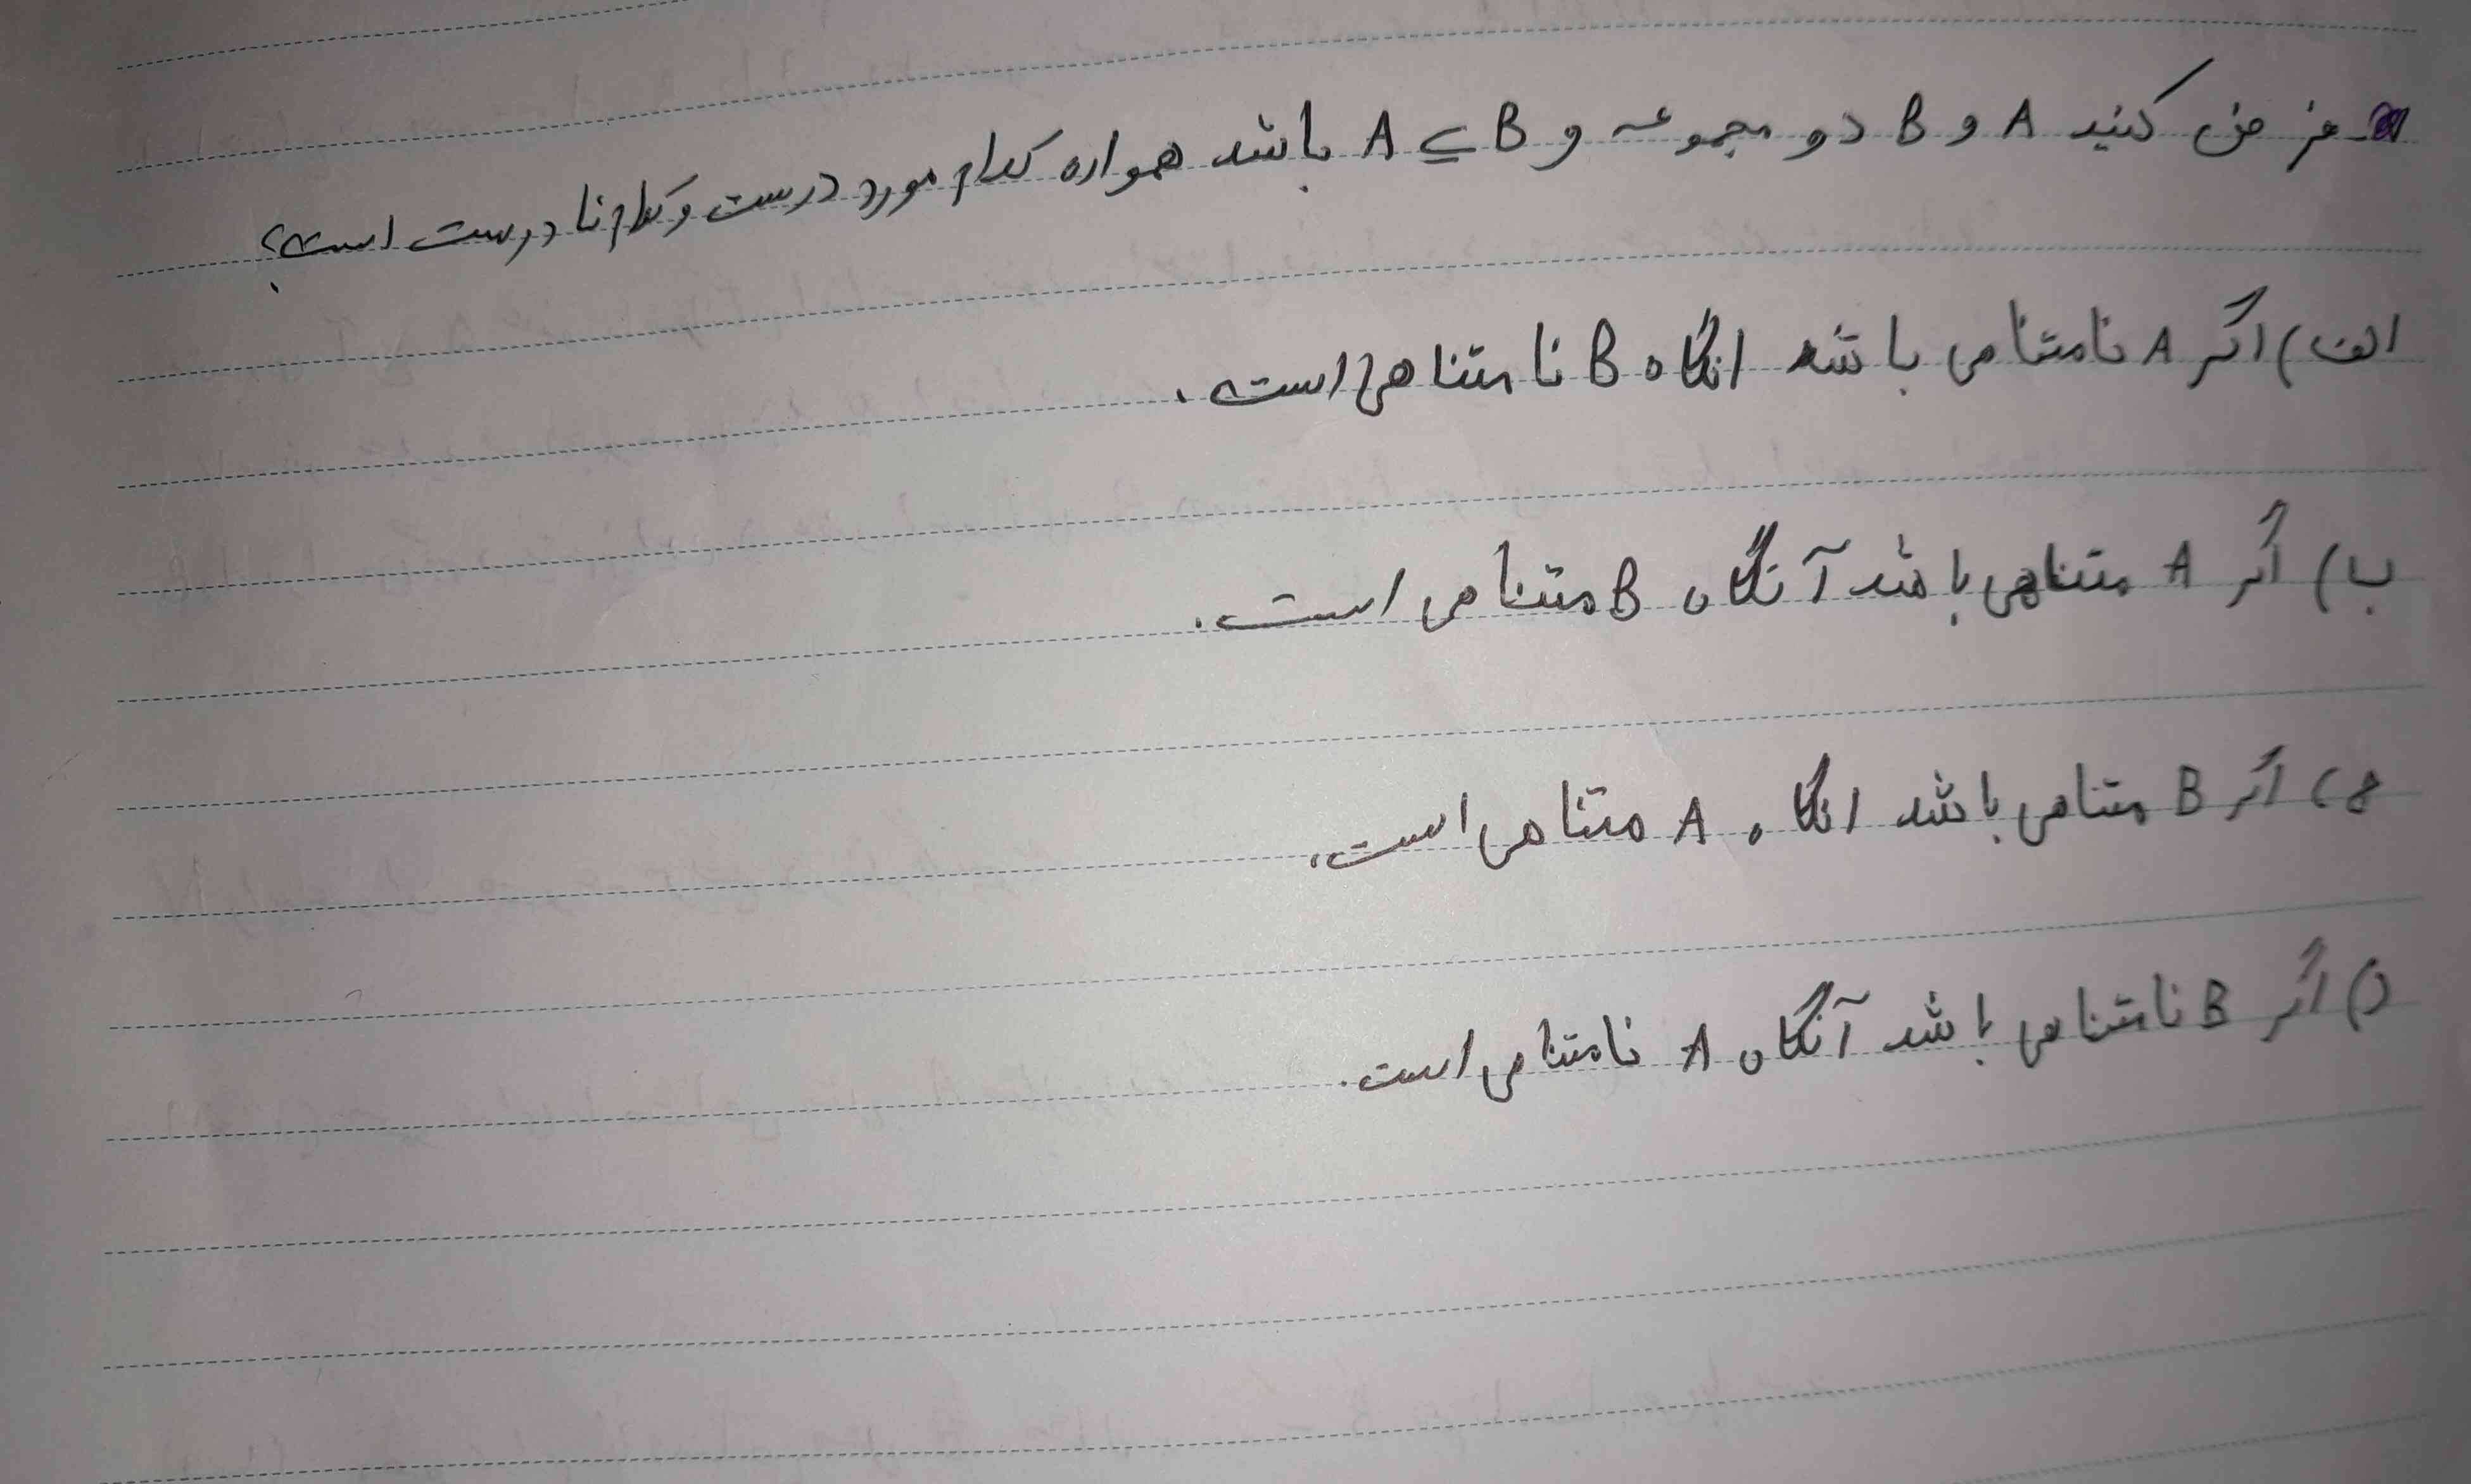 فرض کنید A و B دو مجموعه و A ⊆ B باشد همواره کدام مورد درست و کدام نادرست است؟
الف) اگر A نامتناهی باشد انگاه B نامتناهی است.
ب) اگر A متناهی باشد آنگاه B متناهی است.
ج) اگر B متناهی باشد انگاه A متناهی است.
د) اگر B نامتناهی باشد آنگاه A نامتناهی است.